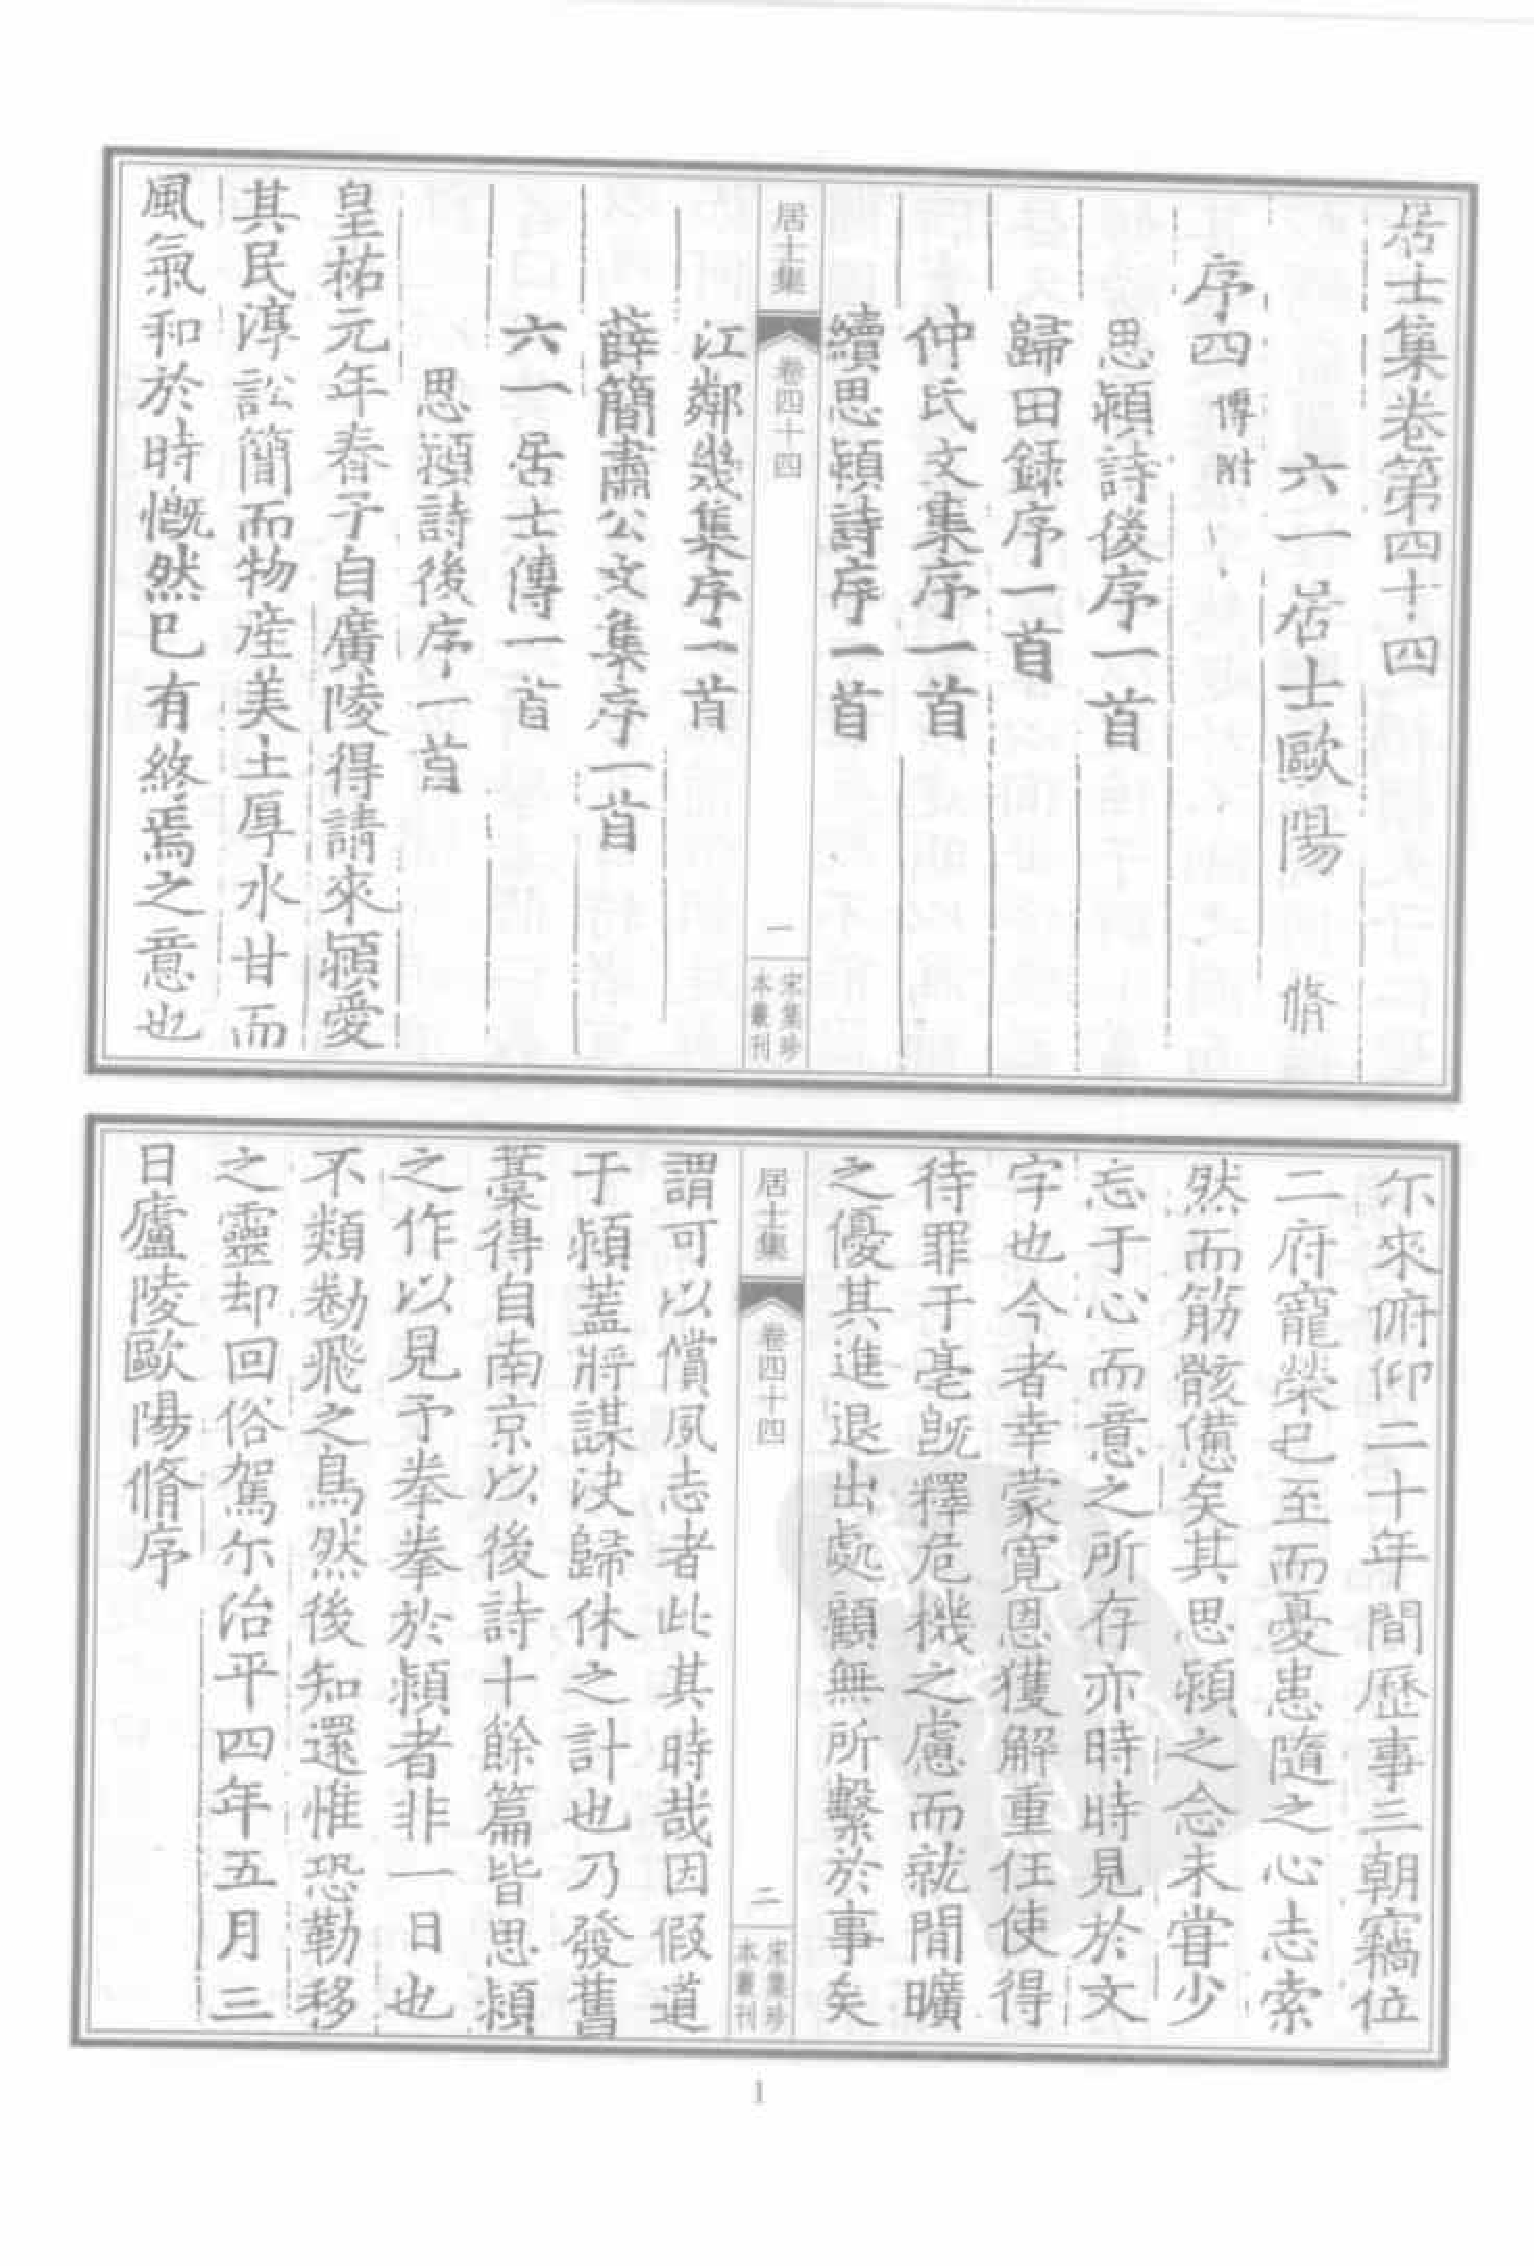 居士集卷第四十四
六一居士歐陽 脩
序四 傳附
思潁詩後序一首
歸田録序一首
仲氏文集序一首
續思潁詩序一首
居士集 卷四十四 一 宋集珍本叢刊
江鄰幾集序一首
薛簡肅公文集序一首
六一居士傳一首
思潁詩後序一首
皇祐元年春予自廣陵得請來潁愛
其民淳訟簡而物産美土厚水甘而
風氣和於時慨然已有終焉之意也
尔來俯仰二十年間歷事三朝竊位
二府寵榮已至而憂患隨之心志索
然而筋骸憊矣其思潁之念未甞少
忘于心而意之所存亦時時見於文
字也今者幸蒙寬恩獲解重任使得
待罪于亳旣釋危機之慮而就閒曠
之優其進退出處顧無所繫於事矣
居士集 卷四十四 二 宋集珍本叢刊
謂可以償夙志者此其時哉因假道
于潁蓋將謀决歸休之計也乃發舊
藁得自南京以後詩十餘篇皆思潁
之作以見予拳拳於潁者非一日也
不類勌飛之鳥然後知還惟恐勒移
之靈却回俗駕尔治平四年五月三
日廬陵歐陽脩序
1